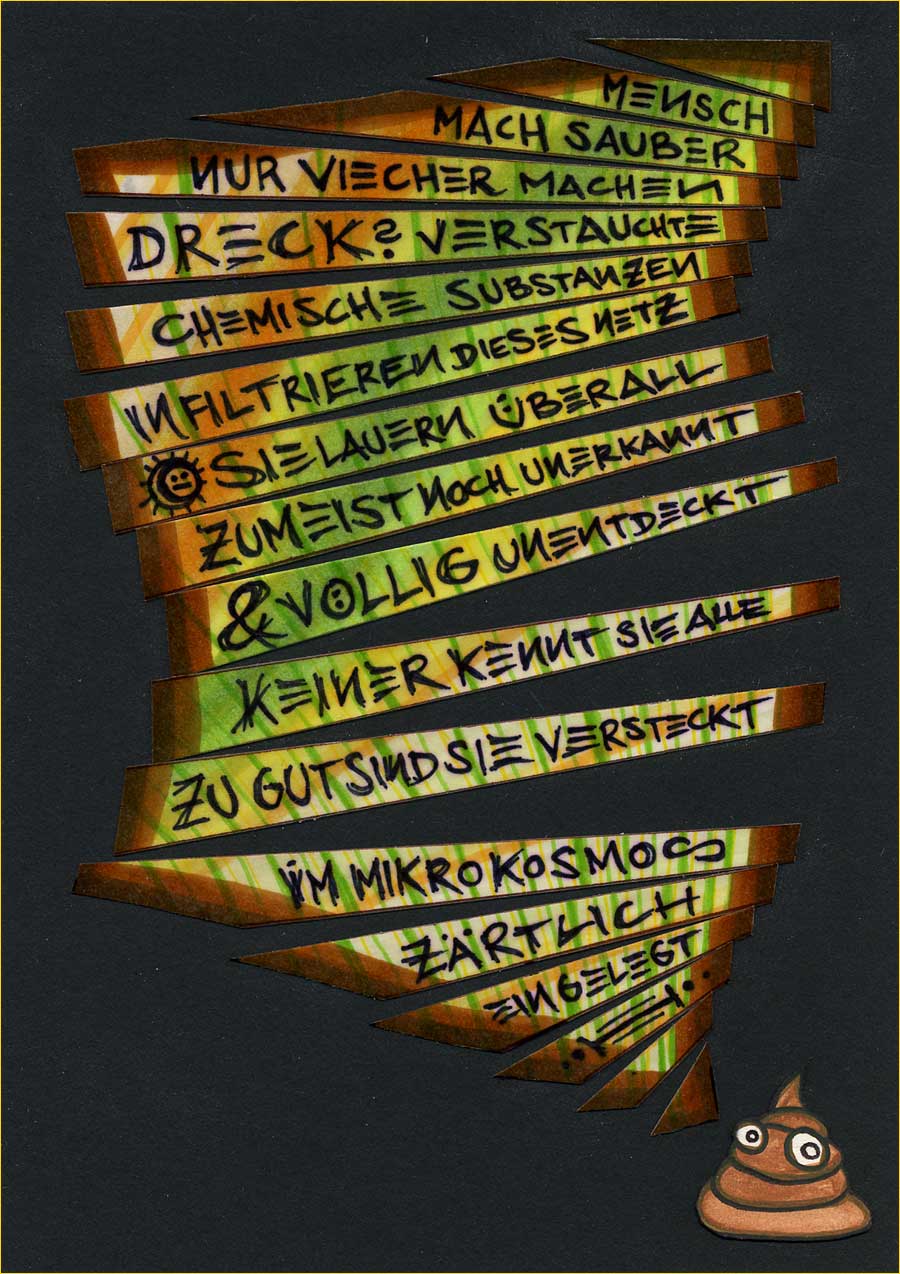 MENSCH
MACH SAUBER
NUR VIECHER MACHEN
DRECK? VERSTAUCHTE
CHEMISCHE SUBSTANZEN
INFILTRIEREN DIESES NETZ
SIE LAUERN ÜBERALL
ZUMEIST NOCH UNERKANNT
& VÖLLIG UNENTDECKT
KEINER KENNT SIE ALLE
ZU GUT SIND SIE VERSTECKT
IM MIKROKOSMOS
ZÄRTLICH
EINGELEGT